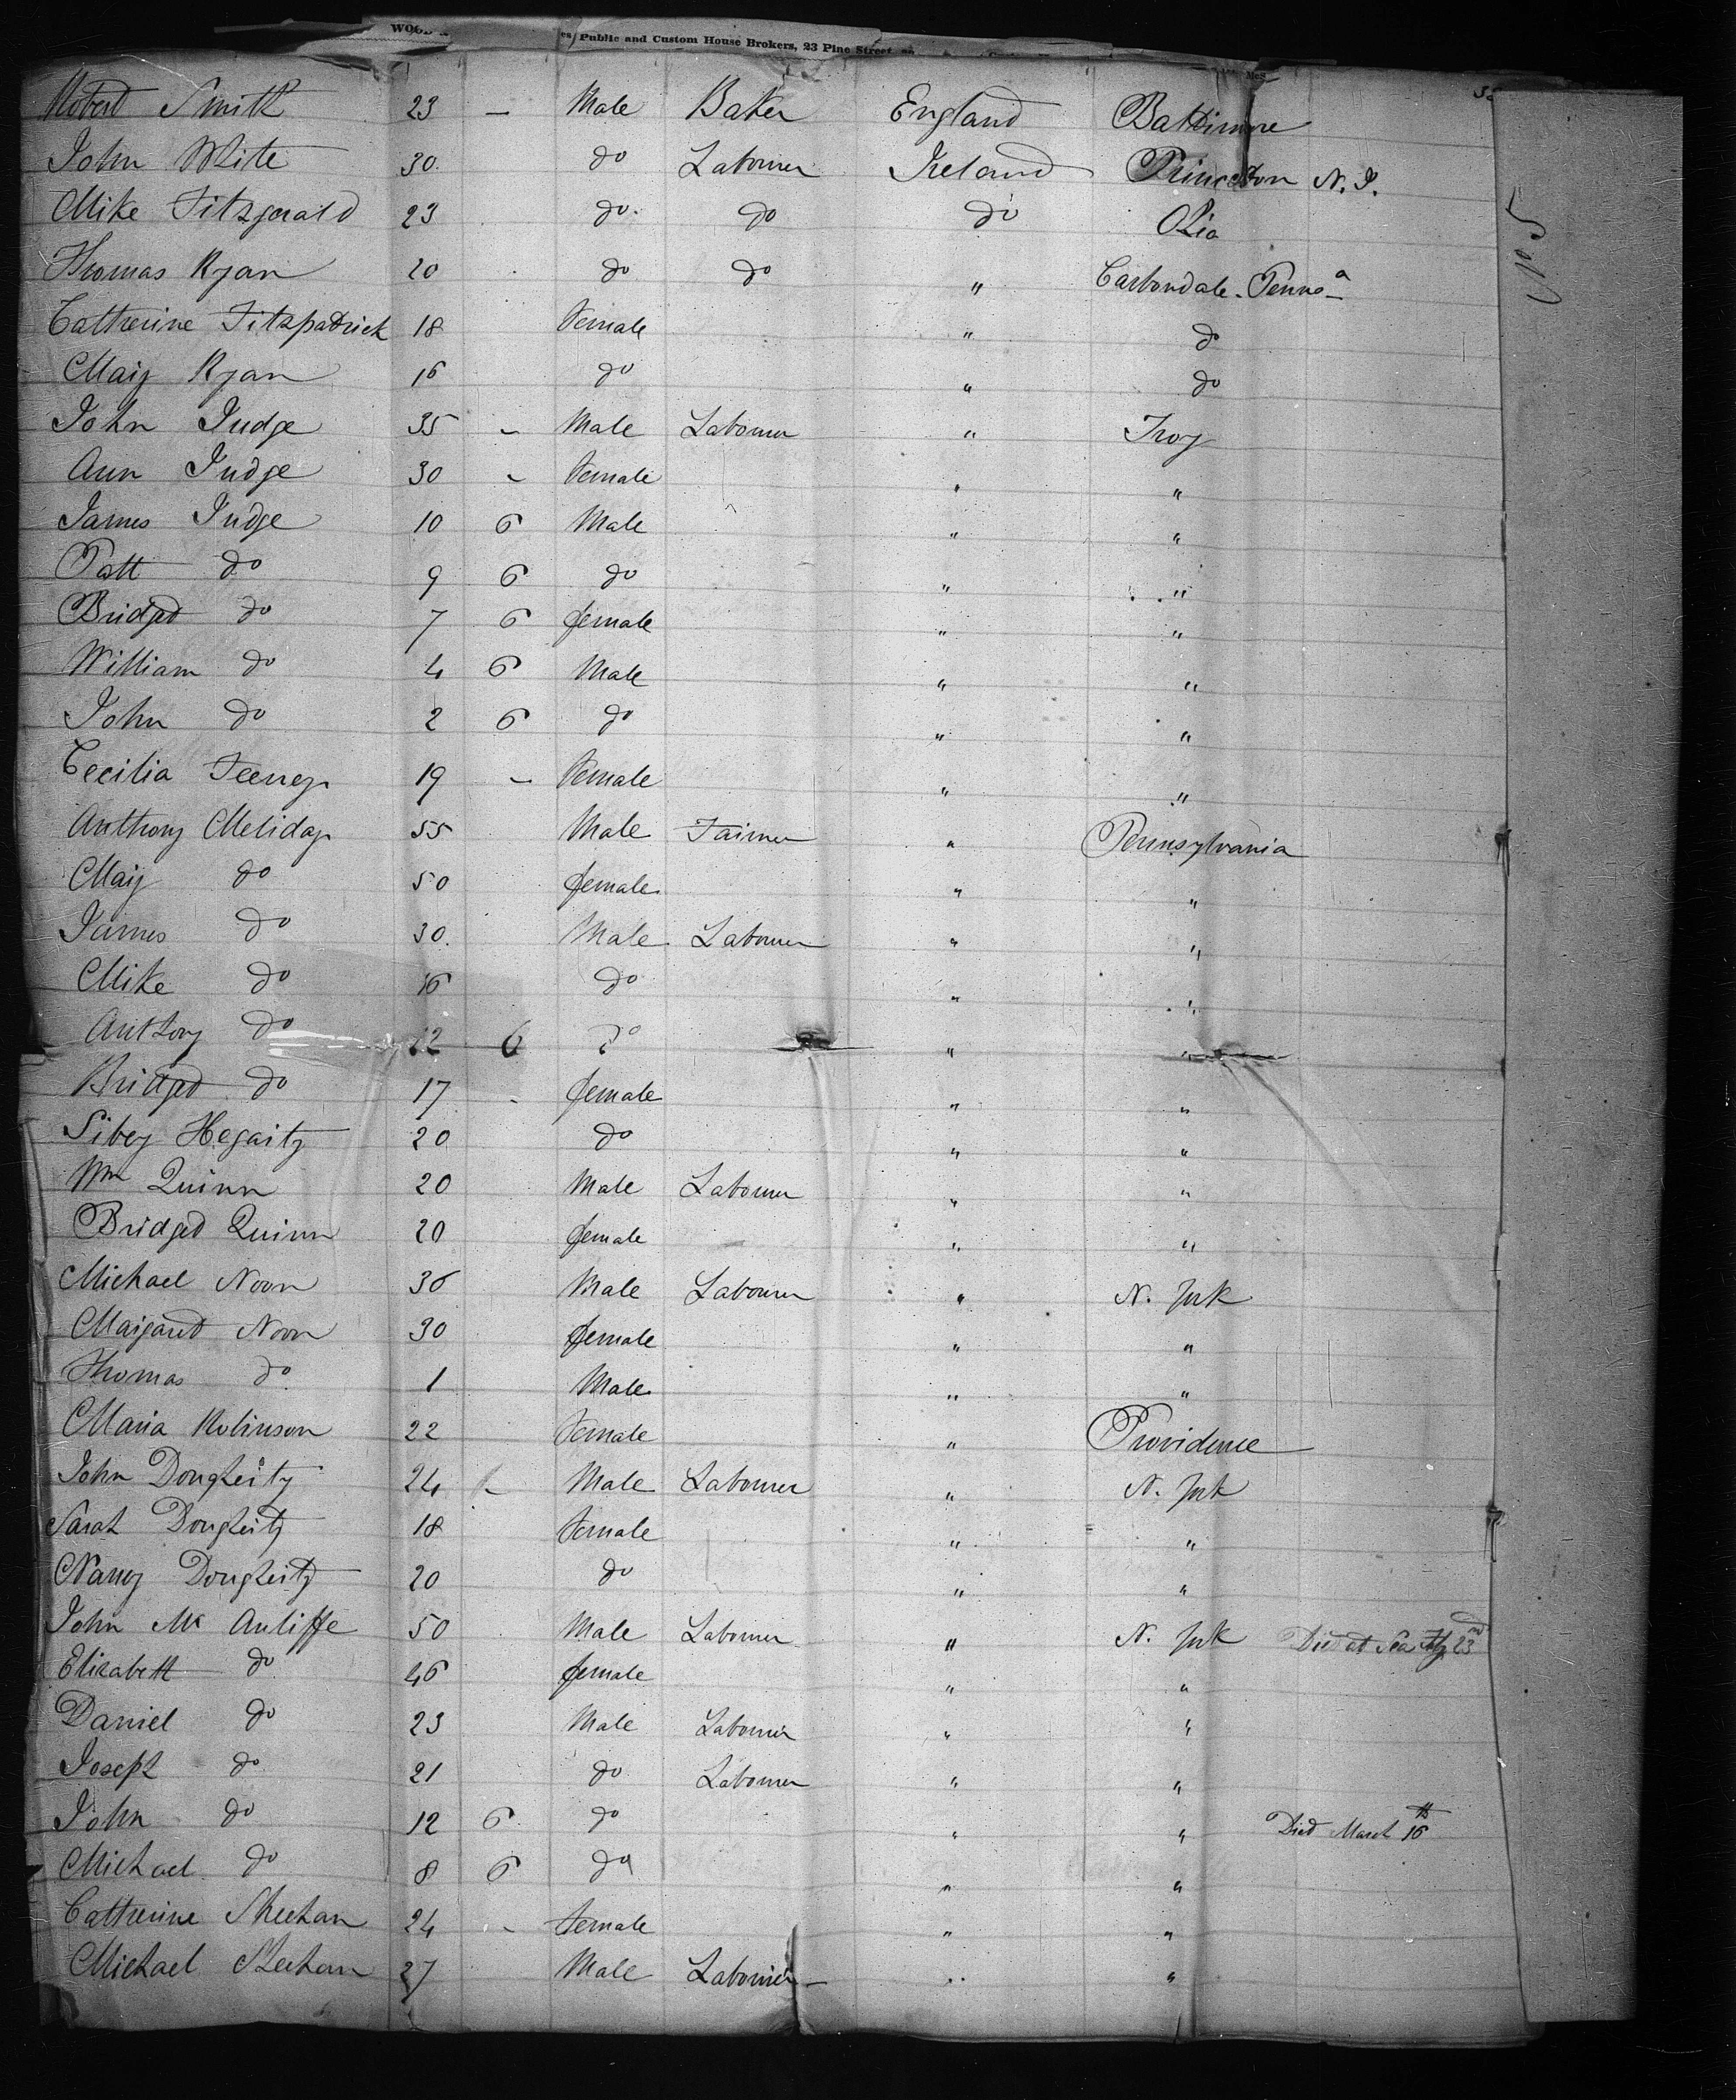 es Public and Custom House Brokers, 23 Pine Street
Robert Smith 23 — Male Baker England Baltimore
John Wite 30. do Labourer Ireland Princeton N. J.
Mike Fitzgerald 23 do. do do Ohio
Thomas Ryan 20 do do " Carbondale. Penna
Catherine Fitzpatrick 18 Female " do
Mary Ryan 16 do " do
John Judge 35 – Male Labourer " Troy
Ann Judge 30 – Female " "
James Judge 10 6 Male " "
Patt do 9 6 do " "
Bridged do 7 6 female " "
William do 4 6 Male " "
John do 2 6 do " "
Cecilia Feeney 19 – Female " "
Anthony Meliday 55 Male Farmer " Pennsylvania
Mary do 50 female " "
James do 30. Male Labourer " "
Mike do 16 do " "
Anthony do 12 6 do " "
Bridged do 17 - female " "
Sibey Hegarty 20 do " "
Wm Quinn 20 Male Labourer " "
Bridged Quinn 20 female " "
Michael Noon 36 Male Labourer " N. York
Margaret Noon 30 female " "
Thomas do 1 Male " "
Maria Robinson 22 Female " Providence
John Dougherty 24 – Male Labourer " N. York
Sarah Dougherty 18 Female " "
Nancy Dougherty 20 do " "
John Mc Auliffe 50 Male Labourer " N. York Died at Sea 23
Elizabeth do 46 female " "
Daniel do 23 Male Labourer " "
Joseph do 21 do Labourer " "
John do 12 6 do " " Died March 16th
Michael do 8 6 do " "
Catherine Sheehan 24 – Female " "
Michael Sheehan 27 Male Labourer – " "